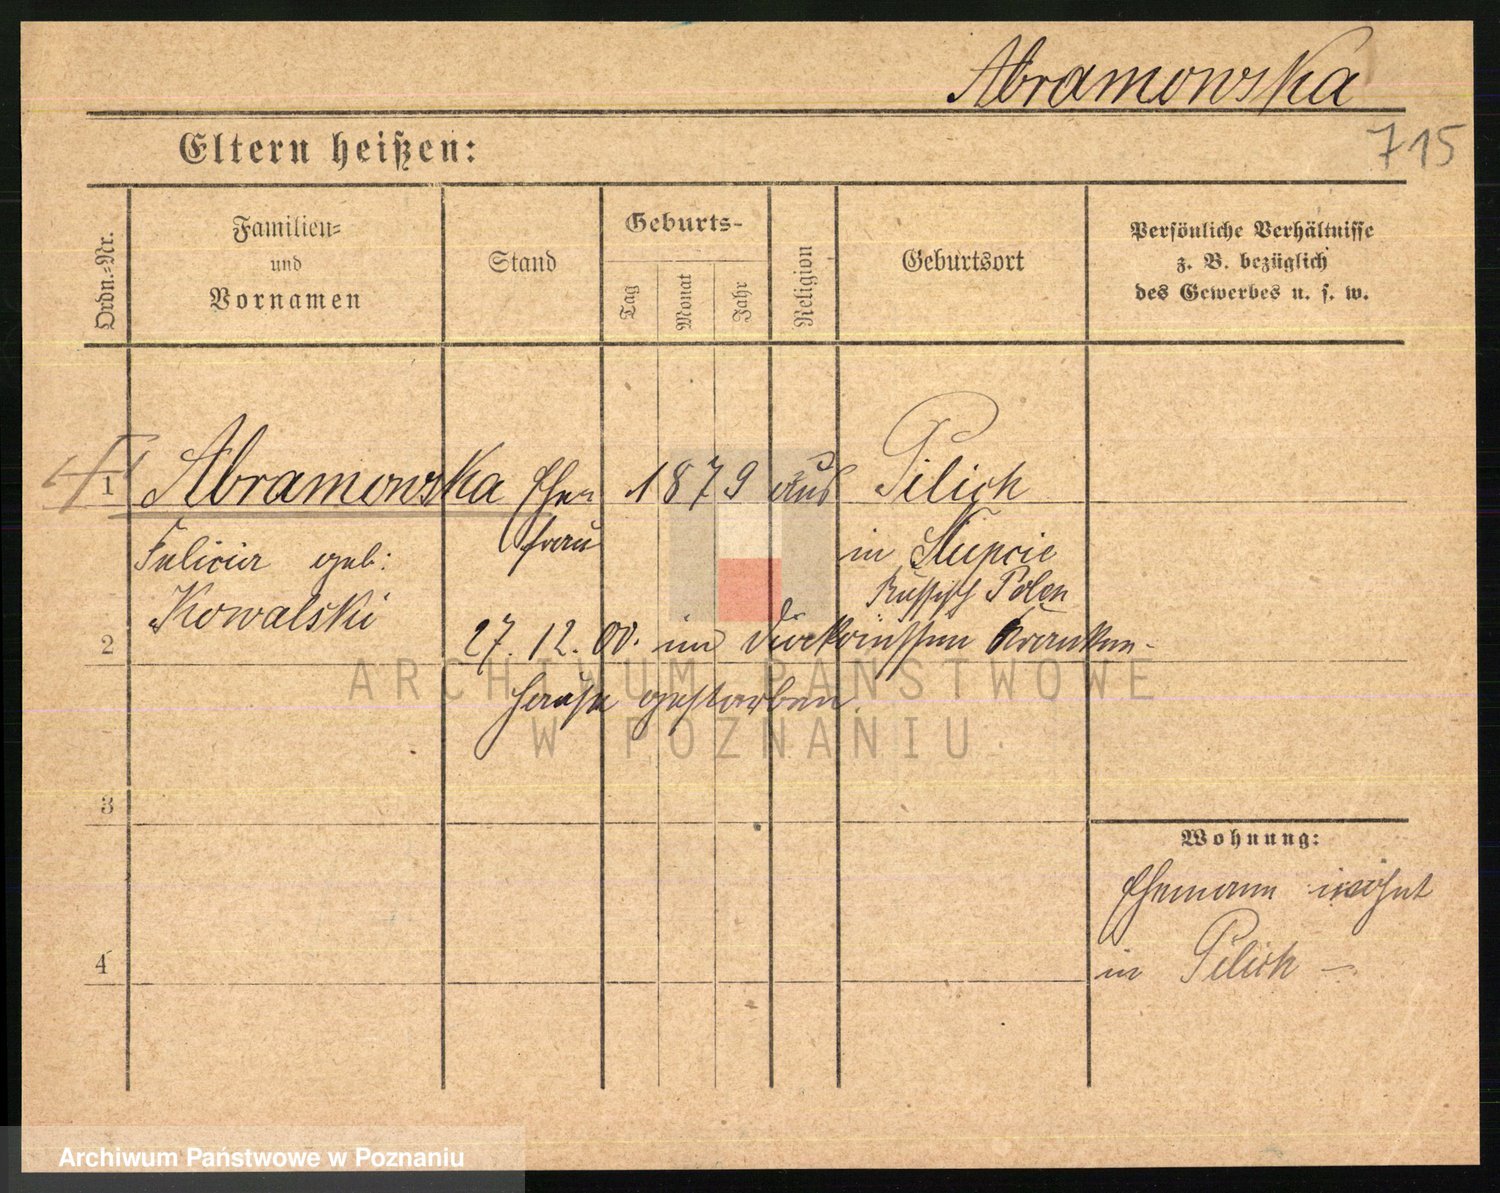 Abramowska
715
Eltern heißen:
Ordn.=Nr.
Familien=
und
Vornamen
Stand
Geburts-
Tag
Monat
Jahr
Religion
Geburtsort
Persönliche Verhältnisse
z. B. bezüglich
des Gewerbes u. s. w.
1
Abramowska Ehe- 1879 aus Pilich
frau
in Slupcie
Felicia geb:
Russisch Polen
Kowalski
2
27. 12. 00. im Kranken-
hause gestorben.
ARCHIWUM PAŃSTWOWE
W POZNANIU
3
Wohnung:
Ehemann wohnt
4
in Pilich –
Archiwum Państwowe w Poznaniu